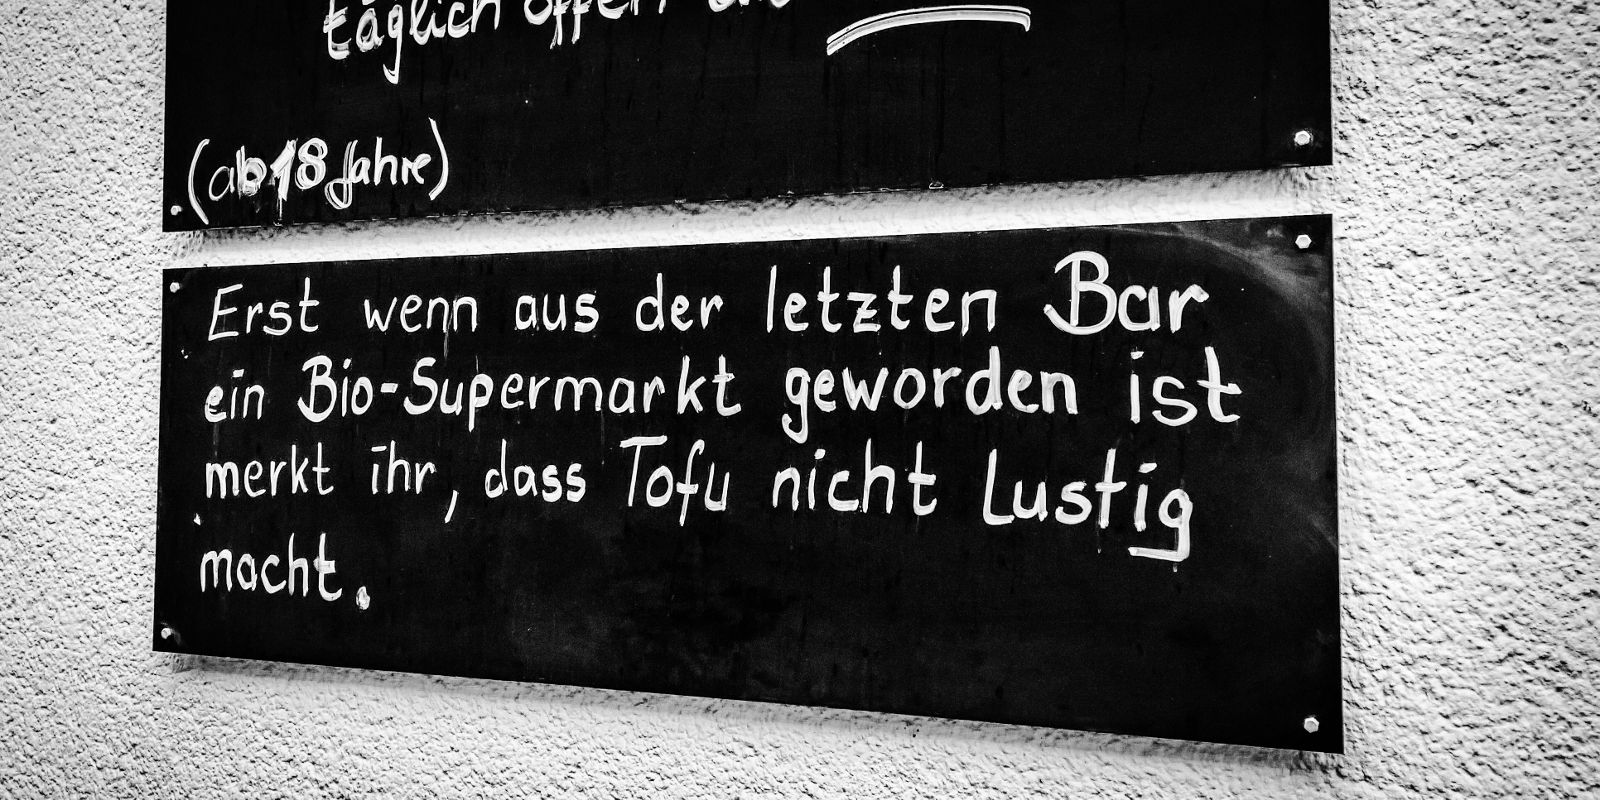 täglich offen
(ab 18 Jahre)
Erst wenn aus der letzten Bar
ein Bio-Supermarkt geworden ist
merkt ihr, dass Tofu nicht Lustig
macht.